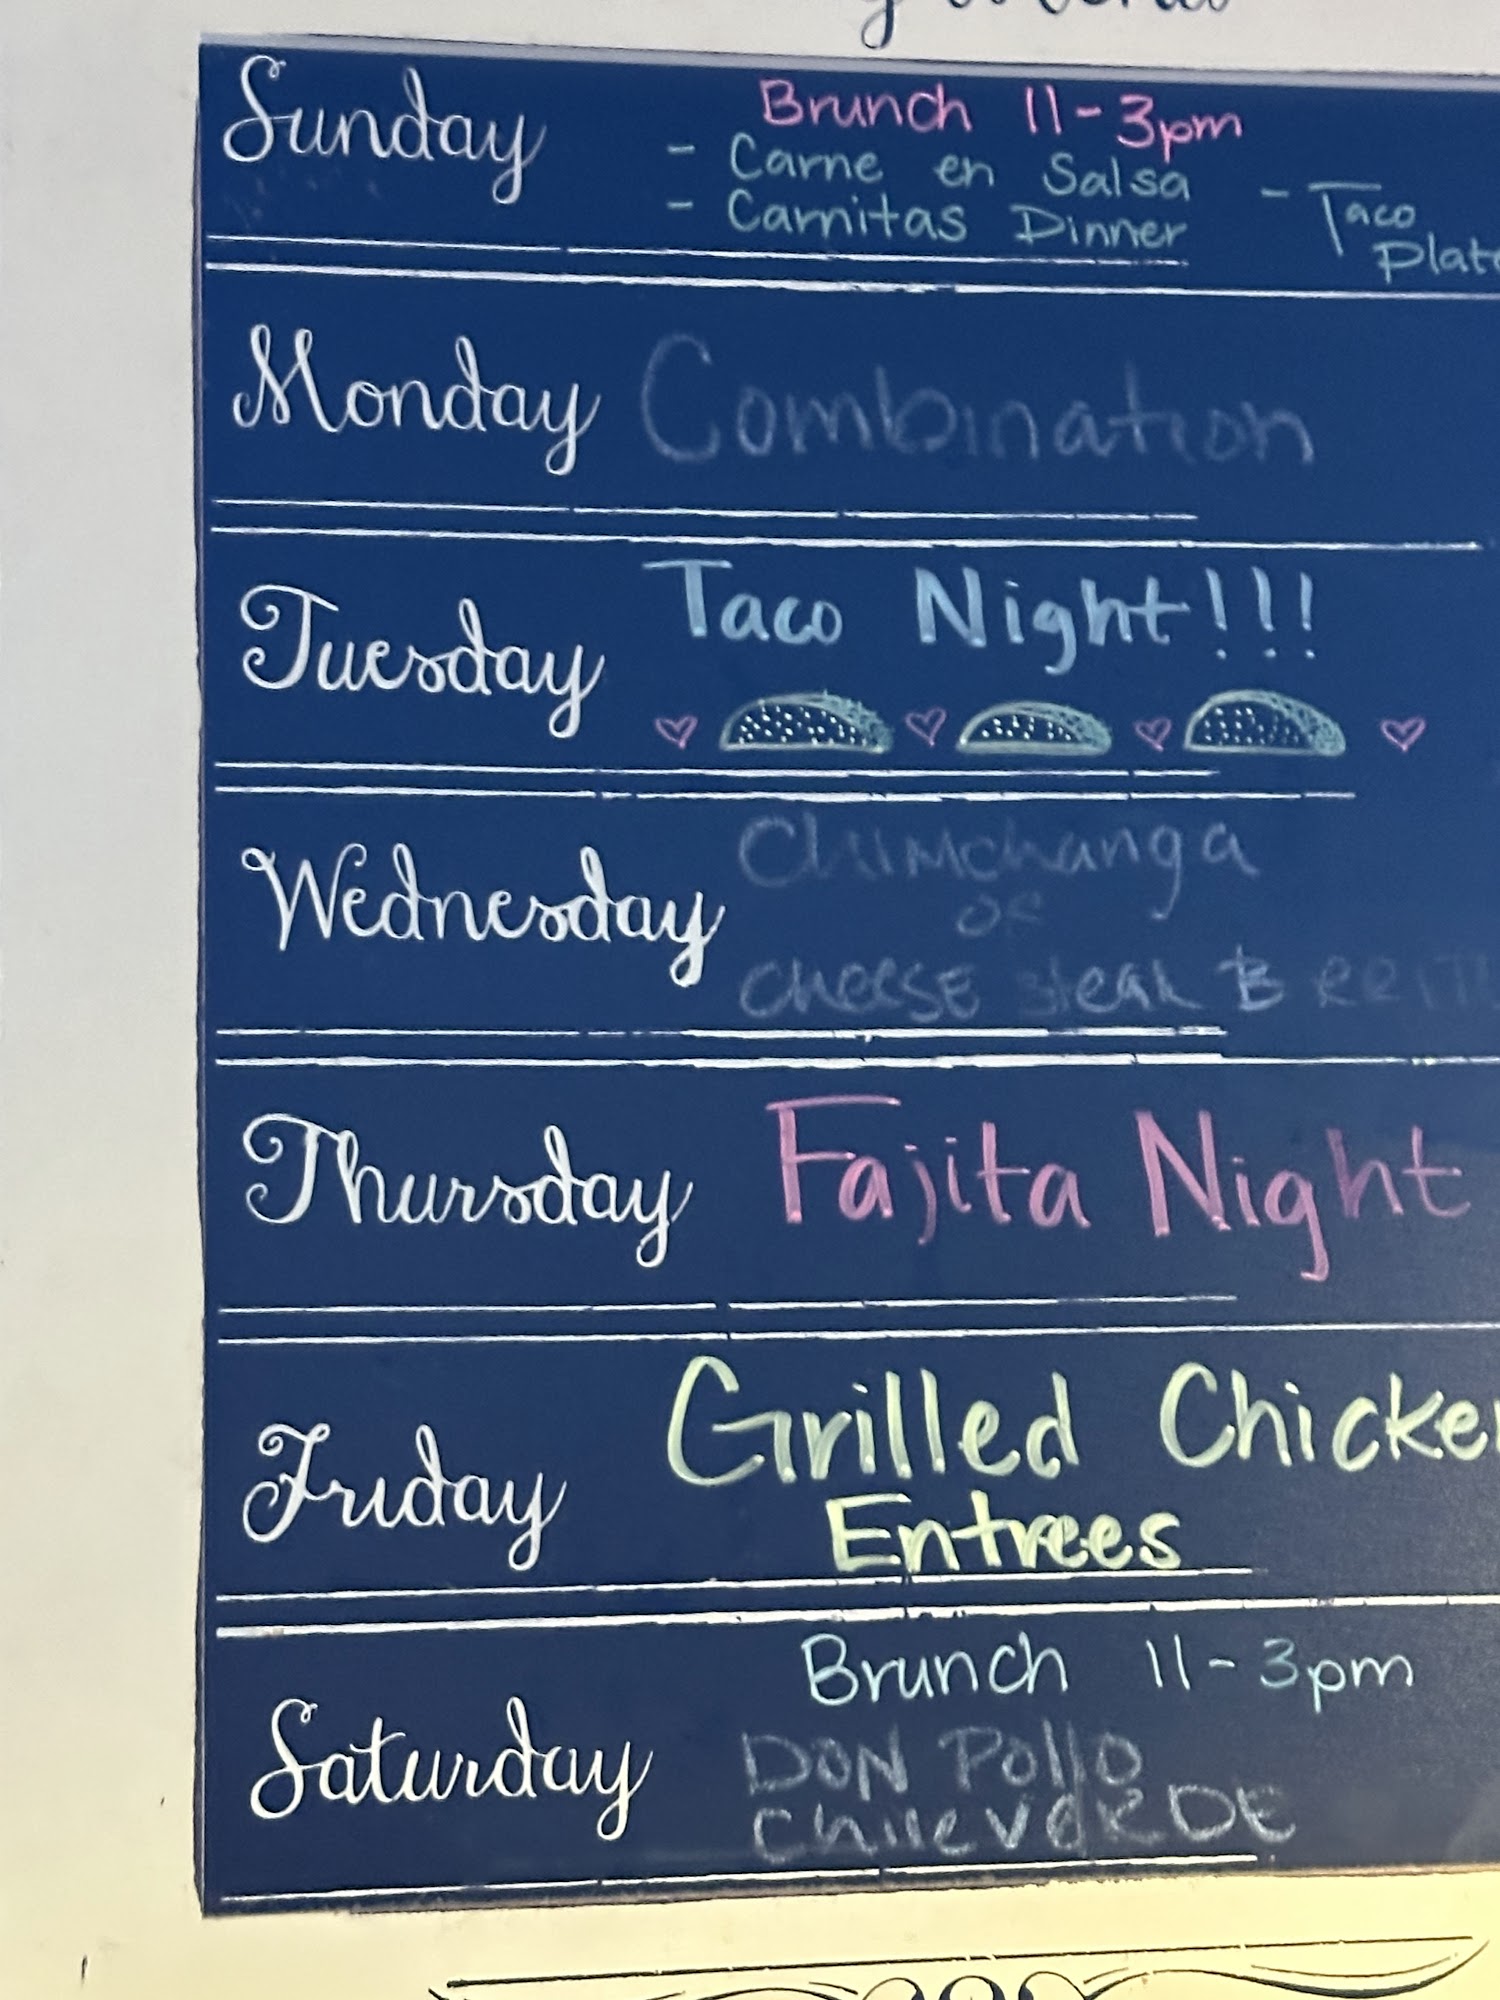 Sunday
Brunch 11-3pm
- Carne en Salsa
- Carnitas Dinner
- Taco
Plate
Monday
Combination
Tuesday
Taco Night!!!
Wednesday
Chimchanga
or
cheese steak
Thursday
Fajita Night
Friday
Grilled Chicken
Entrees
Saturday
Brunch 11-3pm
DON Pollo
Chile VERDE